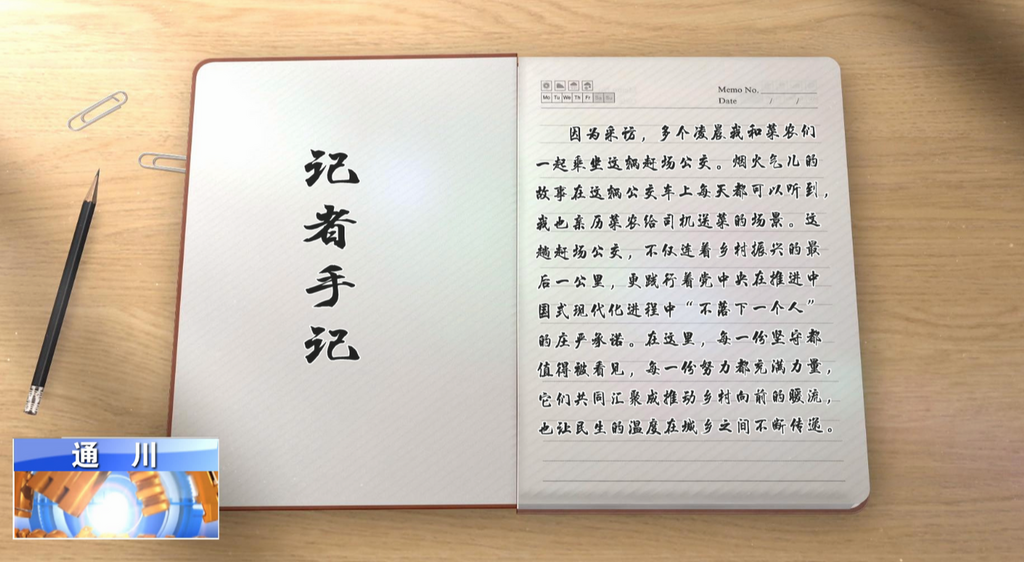 记者手记
Mo Tu We Th Fr Sa Su
Memo No.
Date / /
因为采访，多个凌晨我和菜农们
一起乘坐这辆赶场公交。烟火气儿的
故事在这辆公交车上每天都可以听到，
我也亲历菜农给司机送菜的场景。这
趟赶场公交，不仅连着乡村振兴的最
后一公里，更践行着党中央在推进中
国式现代化进程中“不落下一个人”
的庄严承诺。在这里，每一份坚守都
值得被看见，每一份努力都充满力量，
它们共同汇聚成推动乡村向前的暖流，
也让民生的温度在城乡之间不断传递。
通川